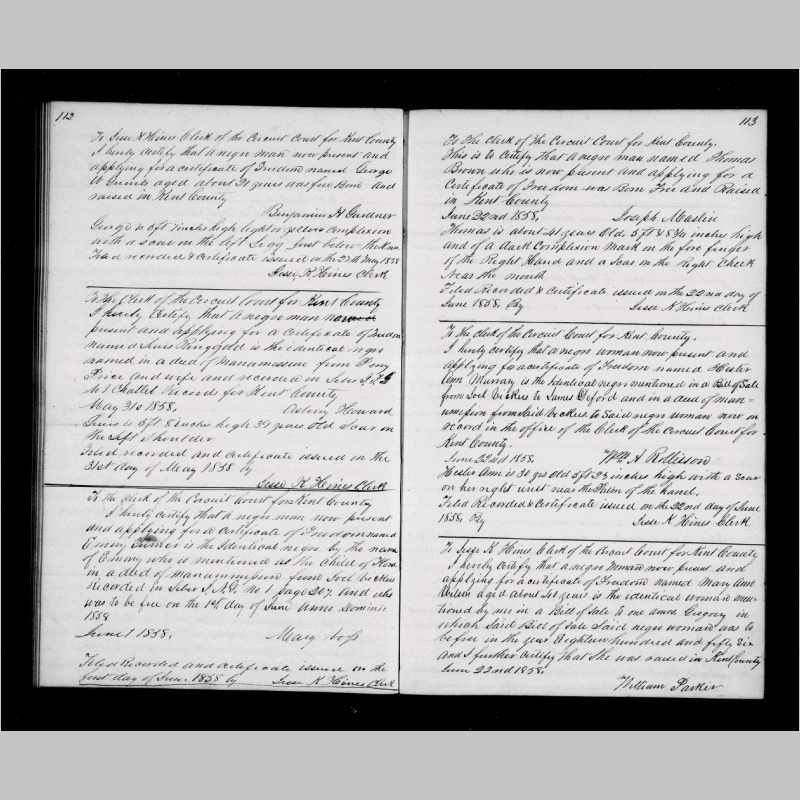 112
To Jesse K Hines Clerk of the Circuit Court for Kent County
I hereby certify that a negro man now present and
applying for a certificate of Freedom named George
W aged about 21 years was free Born and
raised in Kent County
Benjamin H Gardner
George is 5ft 7 inches high light or yellow complexion
with a scar on the left Leg Just below the Knee
Filed recorded & Certificate issued on the 27th May 1858
Jesse K Hines Clerk
To the Clerk of the Circuit Court for Kent County
I hereby Certify that a negro man now
present and applying for a certificate of Freedom
named Ringgold is the identical negro
named in a deed of Manumission from
Price and wife and recorded in Liber
No 1 Chattel Records for Kent County
May 31st 1858. Howard
is 5ft 8 inches high 39 years old Scar on
the left Shoulder
Filed recorded and certificate issued on the
31st day of May 1858 by
Jesse K Hines Clerk
To the Clerk of the Circuit Court for Kent County
I hereby certify that a negro man now present
and applying for a certificate of Freedom named
Emory is the Identical negro by the name
of Emory who is mentioned as the Child of
in a deed of Manumission from Joel Vickers
recorded in Liber No 1 page 207. And who
was to be free on the 1st day of June Anno Domini
1858
June 1 1858. Mary
Filed Recorded and certificate issued on the
first day of June 1858 by Jesse K Hines Clerk
113
To The Clerk of the Circuit Court for Kent County.
This is to certify that a negro man named Thomas
Brown who is now present and applying for a
Certificate of Freedom was Born Free and Raised
in Kent County
June 22nd 1858, Joseph Maslin
Thomas is about 41 years Old 5ft & 8 3/4 inches high
and of a dark Complexion Mark on the fore finger
of the Right Hand and a Scar on the Right Cheek
Near the mouth
Filed Recorded & Certificate issued on the 22nd day of
June 1858, By Jesse K Hines Clerk
To the clerk of the Circuit Court for Kent County.
I hereby certify that a negro woman now present and
applying for a certificate of Freedom named Hester
Ann Murray is the Identical negro mentioned in a Bill of Sale
from Joel Vickers to James and in a deed of man-
umission from Said Vickers to Said negro woman now on
record in the office of the Clerk of the Circuit Court for
Kent County.
June 22nd 1858 Wm A Rollison
Hester Ann is 30 yrs Old 5ft 2 1/2 inches high with a Scar
on her right wrist near the Palm of the hand.
Filed Recorded & Certificate issued on the 22nd day of June
1858, By Jesse K Hines Clerk
To Jesse K Hines Clerk of the Circuit Court for Kent County
I hereby Certify that a negro Woman now present and
applying for a certificate of Freedom named Mary Ann
aged about 40 years is the identical woman men-
tioned by me in a Bill of Sale to one Gregory in
which Said Bill of Sale Said negro woman was to
be free in the year Eighteen hundred and fifty Six
and I further Certify that She was raised in Kent County
June 22nd 1858.
William Parker